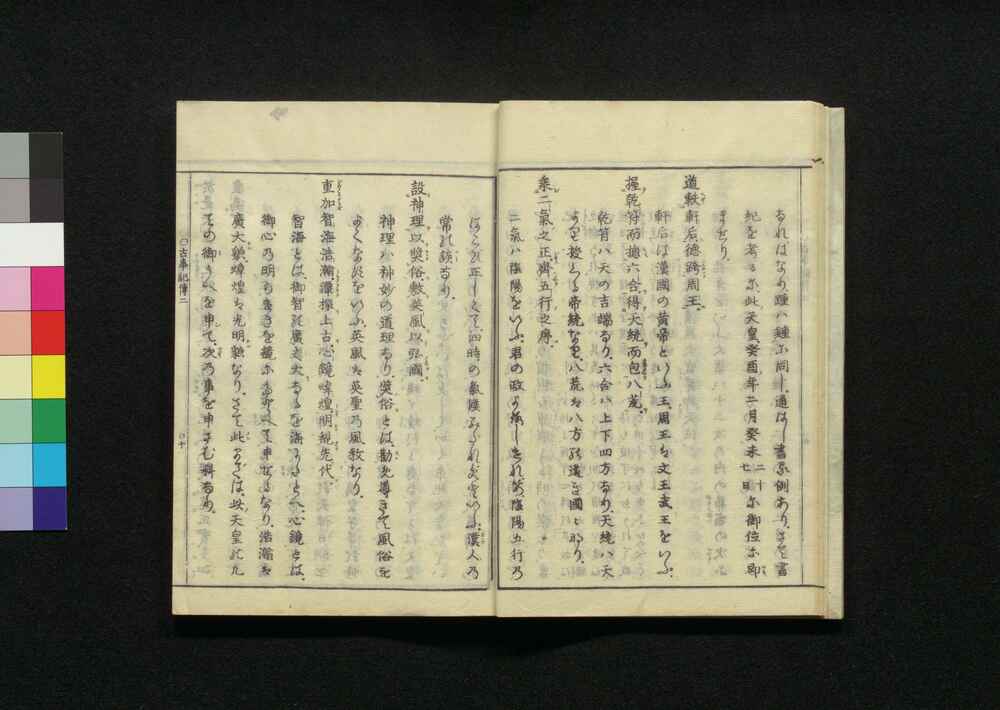 なればなり、踵は鍾に同じ、通はし書る例あり、さて書
紀を考るに、此天皇、癸酉年二月癸未二十七日に御位に即
ませり、
道軼軒后、德跨周王、
軒后は漢國の黃帝といふ王、周王は文王武王をいふ、
握乾符而摠六合、得天統而包八荒、
乾符は天の吉瑞なり、六合は上下四方なり、天統は天
より授くる帝統なり、八荒は八方の遠き國々なり、
乘二氣之正、齊五行之序、
二氣は陰陽をいふ、君の政よろしければ、陰陽五行の
正しくて、四時の氣候みだれずといふ、漢人の
常の談なり、
設神理以奬俗、敷英風以弘國、
神理は神妙の道理なり、奬俗とは、勸め導きて風俗を
よくなすをいふ、英風は英聖の風敎なり、
重加智海浩瀚、潭探上古、心鏡煒煌、明覩先代、
智海とは、御智の廣く大なるを海にたとへ、心鏡とは、
御心の明らなるを鏡にたとへて申せるなり、浩瀚は
廣大貌、煒煌は光明貌なり、さて此までは、此天皇の凡
ての御うへを申て、次の事を申さむ料なり、
○古事記傳二
○十